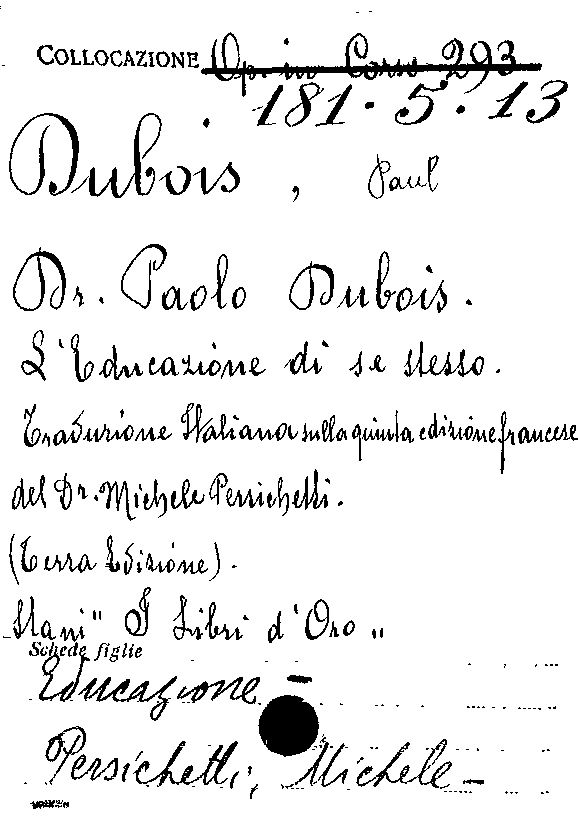 COLLOCAZIONE Op. in Corso 293
181. 5. 13
Dubois, Paul
Dr. Paolo Dubois.
L'Educazione di se stesso.
Traduzione Italiana sulla quinta edizione francese
del Dr. Michele Persichetti.
(Terza Edizione).
"I Libri d'Oro"
Schede figlie
Educazione –
Persichetti, Michele –